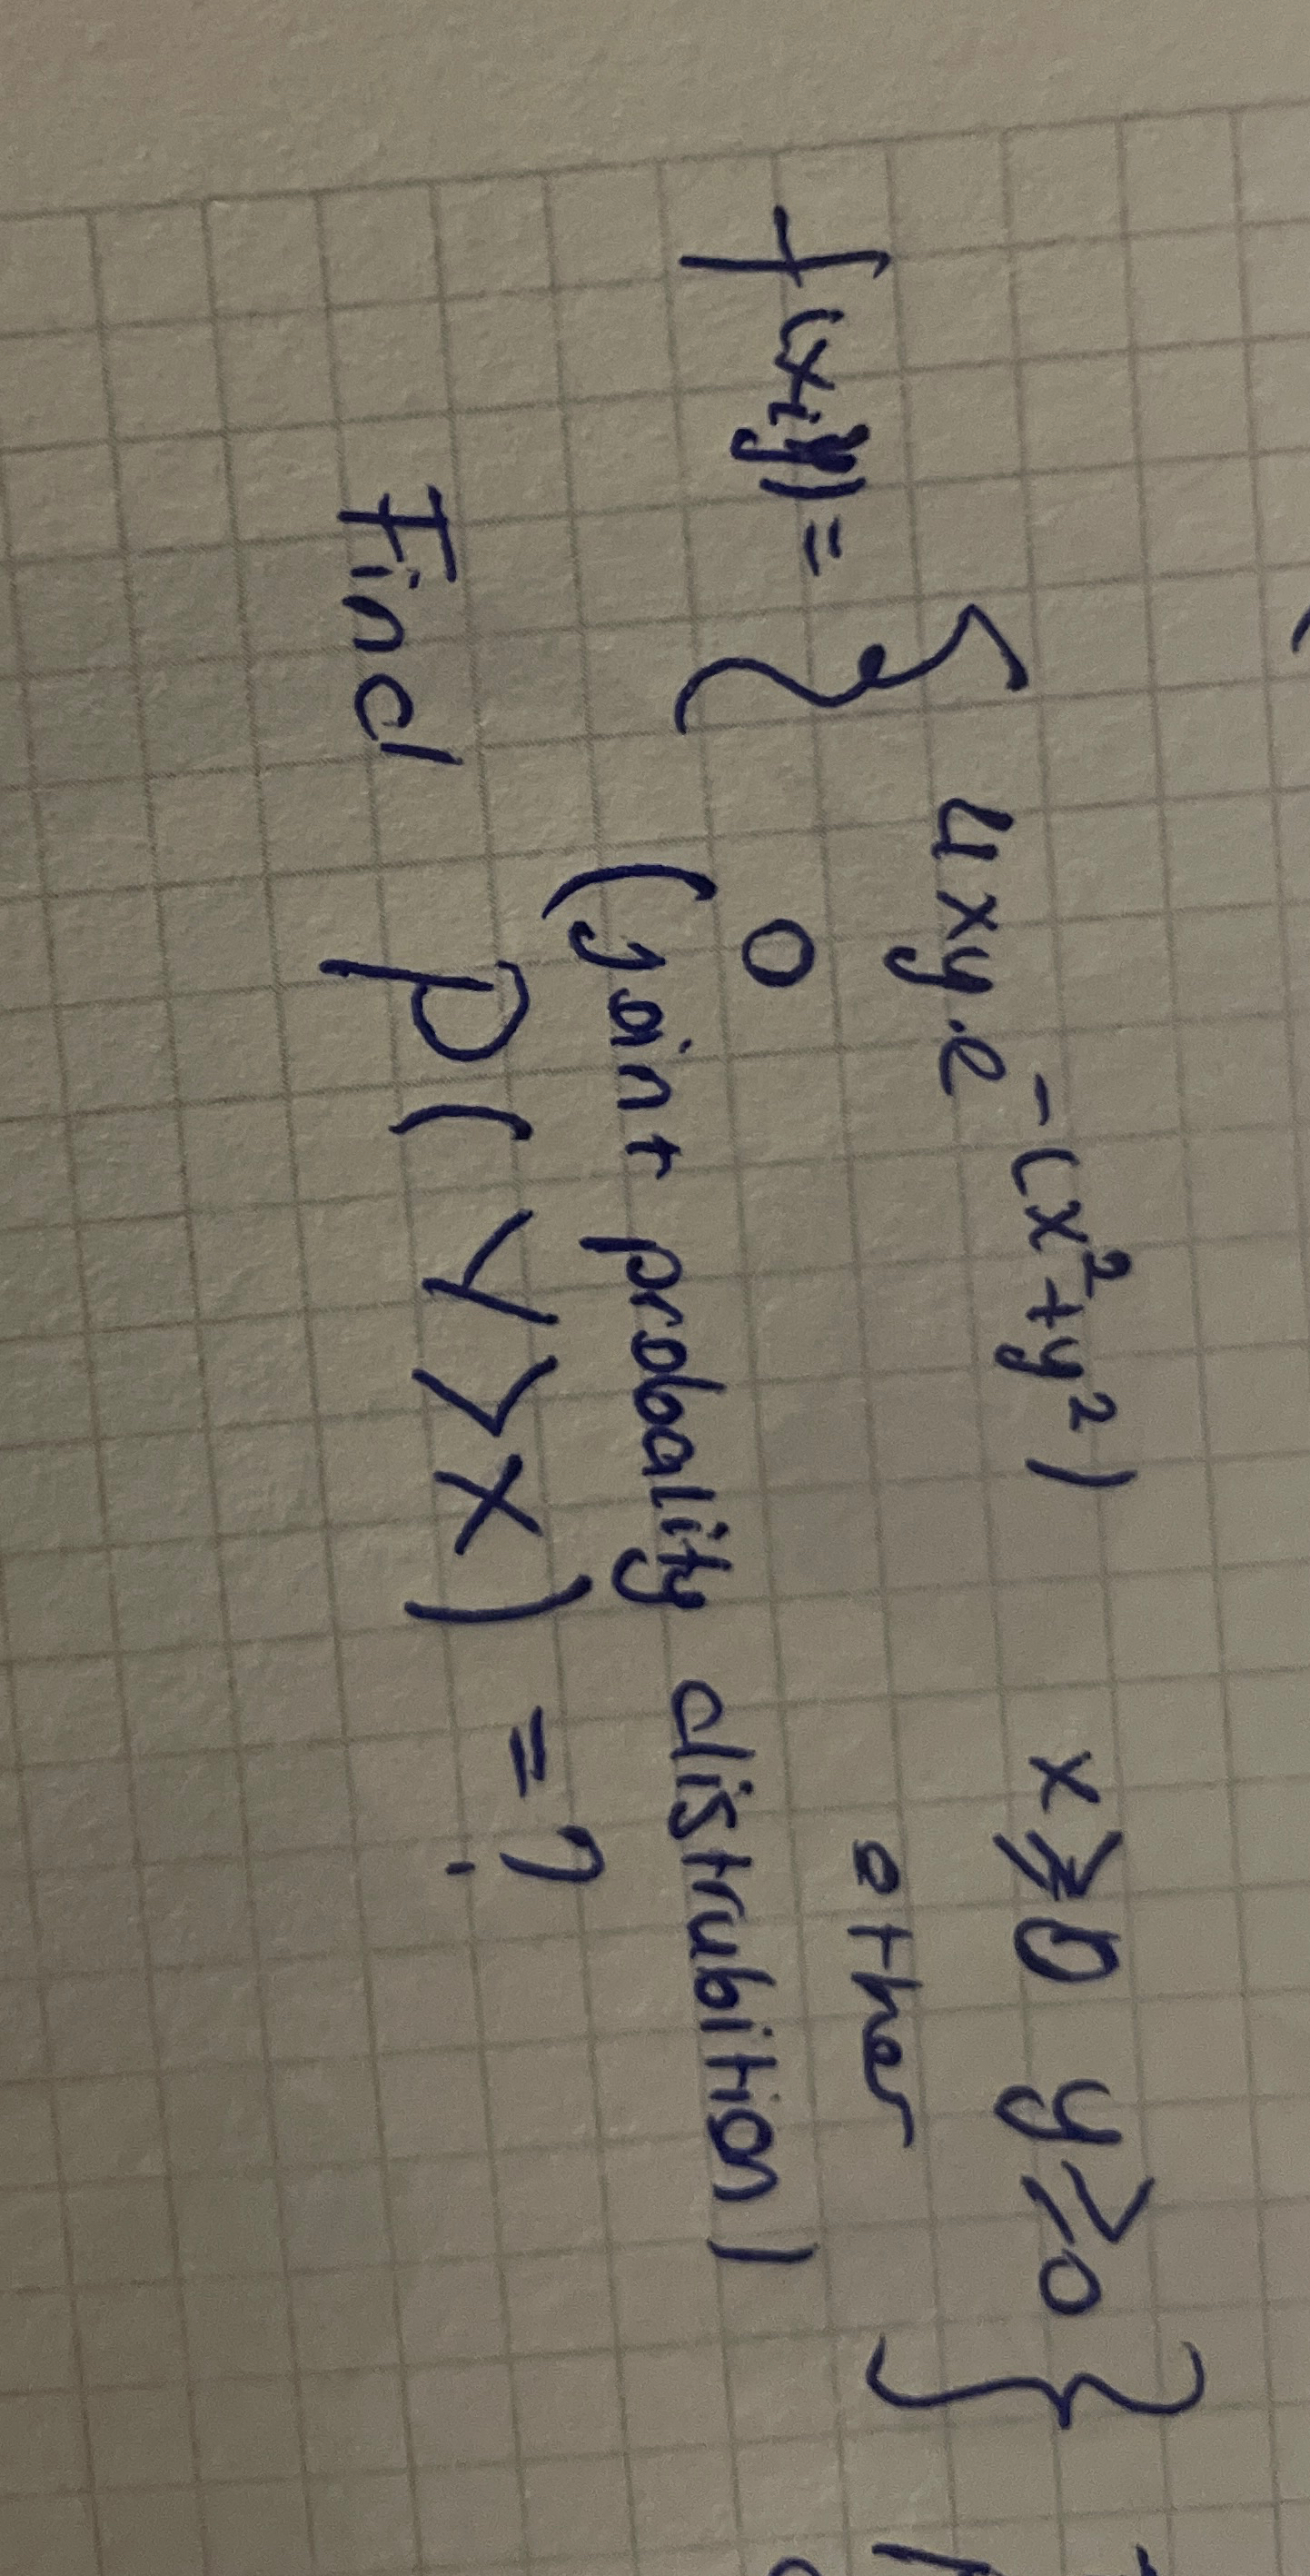 f(x,y) = { 4xy.e^-(x²+y²) x⩾0 y≥0 }
0 other
(joint probality distrubition)
Find P(Y>X) = ?